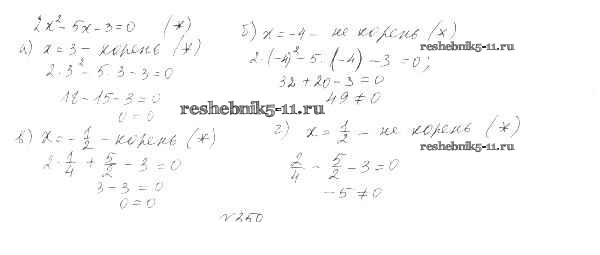 2x² - 5x - 3 = 0 (*)
а) x = 3 - корень (*)
2·3² - 5·3 - 3 = 0
18 - 15 - 3 = 0
0 = 0
б) x = -4 - не корень (*)
reshebnik5-11.ru
2·(-4)² - 5·(-4) - 3 = 0;
32 + 20 - 3 = 0
49 ≠ 0
reshebnik5-11.ru
в) x = -1/2 - корень (*)
2·1/4 + 5/2 - 3 = 0
3 - 3 = 0
0 = 0
г) x = 1/2 - не корень (*)
reshebnik5-11.ru
2/4 - 5/2 - 3 = 0
-5 ≠ 0
№250